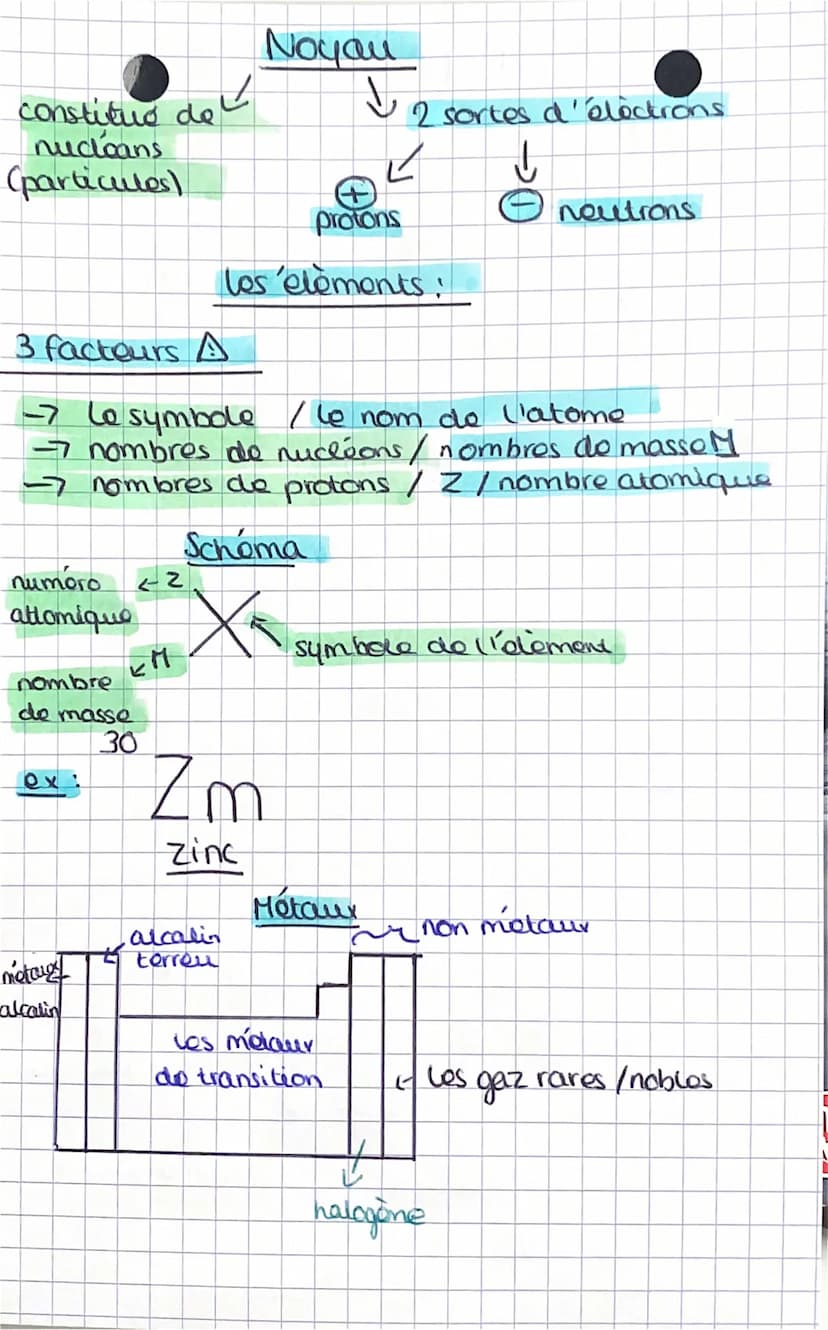 Noyau
constitué de
nucléons
(particules)
2 sortes d'élèctrons
+
protons
− neutrons
les élèments :
3 facteurs ⚠
→ le symbole / le nom de l'atome
→ nombres de nucléons / nombres de masse M
→ nombres de protons / Z / nombre atomique
Schéma
numéro ← Z
attomique
X
symbole de l'élement
↙ M
nombre
de masse
30
ex :
Zm
zinc
Métaux
non métaux
alcalin
terreu
métaux
alcalin
Les métaux
de transition
← Les gaz rares / nobles
halogène